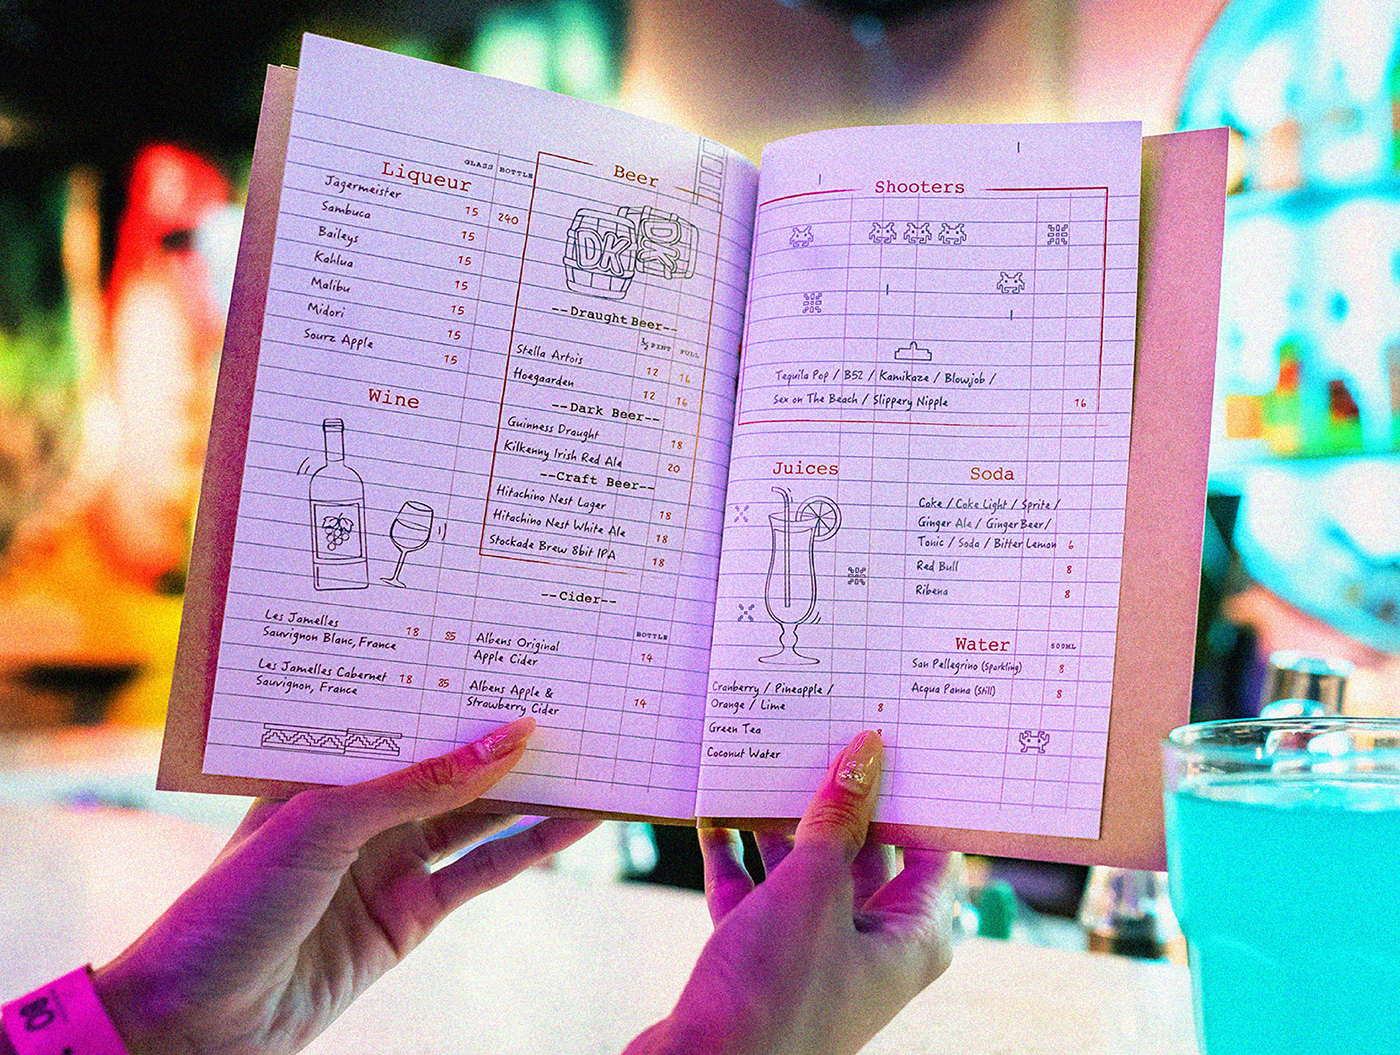 GLASS BOTTLE
Liqueur
Jägermeister 15 240
Sambuca 15
Baileys 15
Kahlua 15
Malibu 15
Midori 15
Sourz Apple 15
Wine
Les Jamelles
Sauvignon Blanc, France 18 85
Les Jamelles Cabernet 18 85
Sauvignon, France
Beer
DK
DK
--Draught Beer--
½ PINT FULL
Stella Artois 12 16
Hoegaarden 12 16
--Dark Beer--
Guinness Draught 18
Kilkenny Irish Red Ale 20
--Craft Beer--
Hitachino Nest Lager 18
Hitachino Nest White Ale 18
Stockade Brew 8bit IPA 18
--Cider--
BOTTLE
Albens Original
Apple Cider 14
Albens Apple &
Strawberry Cider 14
Shooters
Tequila Pop / B52 / Kamikaze / Blowjob /
Sex on The Beach / Slippery Nipple 16
Juices
Cranberry / Pineapple /
Orange / Lime 8
Green Tea 8
Coconut Water
Soda
Coke / Coke Light / Sprite /
Ginger Ale / Ginger Beer /
Tonic / Soda / Bitter Lemon 6
Red Bull 8
Ribena 8
Water 500ML
San Pellegrino (Sparkling) 8
Acqua Panna (Still) 8
80